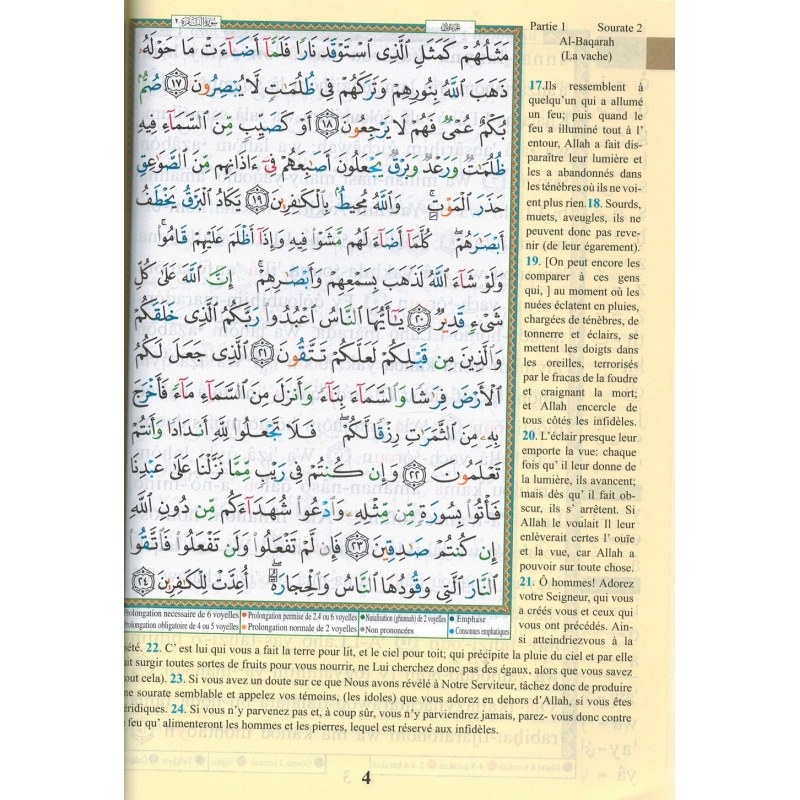 سورة البقرة ٢
Partie 1 Sourate 2
Al-Baqarah
(La vache)
مَثَلُهُمْ كَمَثَلِ ٱلَّذِى ٱسْتَوْقَدَ نَارًا فَلَمَّآ أَضَآءَتْ مَا حَوْلَهُۥ
ذَهَبَ ٱللَّهُ بِنُورِهِمْ وَتَرَكَهُمْ فِى ظُلُمَٰتٍ لَّا يُبْصِرُونَ ١٧ صُمٌّۢ
بُكْمٌ عُمْىٌ فَهُمْ لَا يَرْجِعُونَ ١٨ أَوْ كَصَيِّبٍ مِّنَ ٱلسَّمَآءِ فِيهِ
ظُلُمَٰتٌ وَرَعْدٌ وَبَرْقٌ يَجْعَلُونَ أَصَٰبِعَهُمْ فِىٓ ءَاذَانِهِم مِّنَ ٱلصَّوَٰعِقِ
حَذَرَ ٱلْمَوْتِ ۚ وَٱللَّهُ مُحِيطٌۢ بِٱلْكَٰفِرِينَ ١٩ يَكَادُ ٱلْبَرْقُ يَخْطَفُ
أَبْصَٰرَهُمْ ۖ كُلَّمَآ أَضَآءَ لَهُم مَّشَوْا۟ فِيهِ وَإِذَآ أَظْلَمَ عَلَيْهِمْ قَامُوا۟ ۚ
وَلَوْ شَآءَ ٱللَّهُ لَذَهَبَ بِسَمْعِهِمْ وَأَبْصَٰرِهِمْ ۚ إِنَّ ٱللَّهَ عَلَىٰ كُلِّ
شَىْءٍ قَدِيرٌ ٢٠ يَٰٓأَيُّهَا ٱلنَّاسُ ٱعْبُدُوا۟ رَبَّكُمُ ٱلَّذِى خَلَقَكُمْ
وَٱلَّذِينَ مِن قَبْلِكُمْ لَعَلَّكُمْ تَتَّقُونَ ٢١ ٱلَّذِى جَعَلَ لَكُمُ
ٱلْأَرْضَ فِرَٰشًا وَٱلسَّمَآءَ بِنَآءً وَأَنزَلَ مِنَ ٱلسَّمَآءِ مَآءً فَأَخْرَجَ
بِهِۦ مِنَ ٱلثَّمَرَٰتِ رِزْقًا لَّكُمْ ۖ فَلَا تَجْعَلُوا۟ لِلَّهِ أَندَادًا وَأَنتُمْ
تَعْلَمُونَ ٢٢ وَإِن كُنتُمْ فِى رَيْبٍ مِّمَّا نَزَّلْنَا عَلَىٰ عَبْدِنَا
فَأْتُوا۟ بِسُورَةٍ مِّن مِّثْلِهِۦ وَٱدْعُوا۟ شُهَدَآءَكُم مِّن دُونِ ٱللَّهِ
إِن كُنتُمْ صَٰدِقِينَ ٢٣ فَإِن لَّمْ تَفْعَلُوا۟ وَلَن تَفْعَلُوا۟ فَٱتَّقُوا۟
ٱلنَّارَ ٱلَّتِى وَقُودُهَا ٱلنَّاسُ وَٱلْحِجَارَةُ ۖ أُعِدَّتْ لِلْكَٰفِرِينَ ٢٤
17.Ils ressemblent à
quelqu'un qui a allumé
un feu; puis quand le
feu a illuminé tout à l'
entour, Allah a fait dis-
paraître leur lumière et
les a abandonnés dans
les ténèbres où ils ne voi-
ent plus rien.18. Sourds,
muets, aveugles, ils ne
peuvent donc pas reve-
nir (de leur égarement).
19. [On peut encore les
comparer à ces gens
qui, ] au moment où les
nuées éclatent en pluies,
chargées de ténèbres, de
tonnerre et éclairs, se
mettent les doigts dans
les oreilles, terrorisés
par le fracas de la foudre
et craignant la mort;
et Allah encercle de
tous côtés les infidèles.
20. L'éclair presque leur
emporte la vue: chaque
fois qu' il leur donne de
la lumière, ils avancent;
mais dès qu' il fait ob-
scur, ils s' arrêtent. Si
Allah le voulait Il leur
enlèverait certes l' ouïe
et la vue, car Allah a
pouvoir sur toute chose.
21. Ô hommes! Adorez
votre Seigneur, qui vous
a créés vous et ceux qui
vous ont précédés. Ain-
si atteindriezvous à la
Prolongation nécessaire de 6 voyelles Prolongation permise de 2,4 ou 6 voyelles Nasalisation (ghunnah) de 2 voyelles Emphase
Prolongation obligatoire de 4 ou 5 voyelles Prolongation normale de 2 voyelles Non prononcées Consonnes emphatiques
iété. 22. C' est lui qui vous a fait la terre pour lit, et le ciel pour toit; qui précipite la pluie du ciel et par elle
ait surgir toutes sortes de fruits pour vous nourrir, ne Lui cherchez donc pas des égaux, alors que vous savez
out cela). 23. Si vous avez un doute sur ce que Nous avons révélé à Notre Serviteur, tâchez donc de produire
ne sourate semblable et appelez vos témoins, (les idoles) que vous adorez en dehors d'Allah, si vous êtes
éridiques. 24. Si vous n'y parvenez pas et, à coup sûr, vous n'y parviendrez jamais, parez- vous donc contre
e feu qu' alimenteront les hommes et les pierres, lequel est réservé aux infidèles.
4